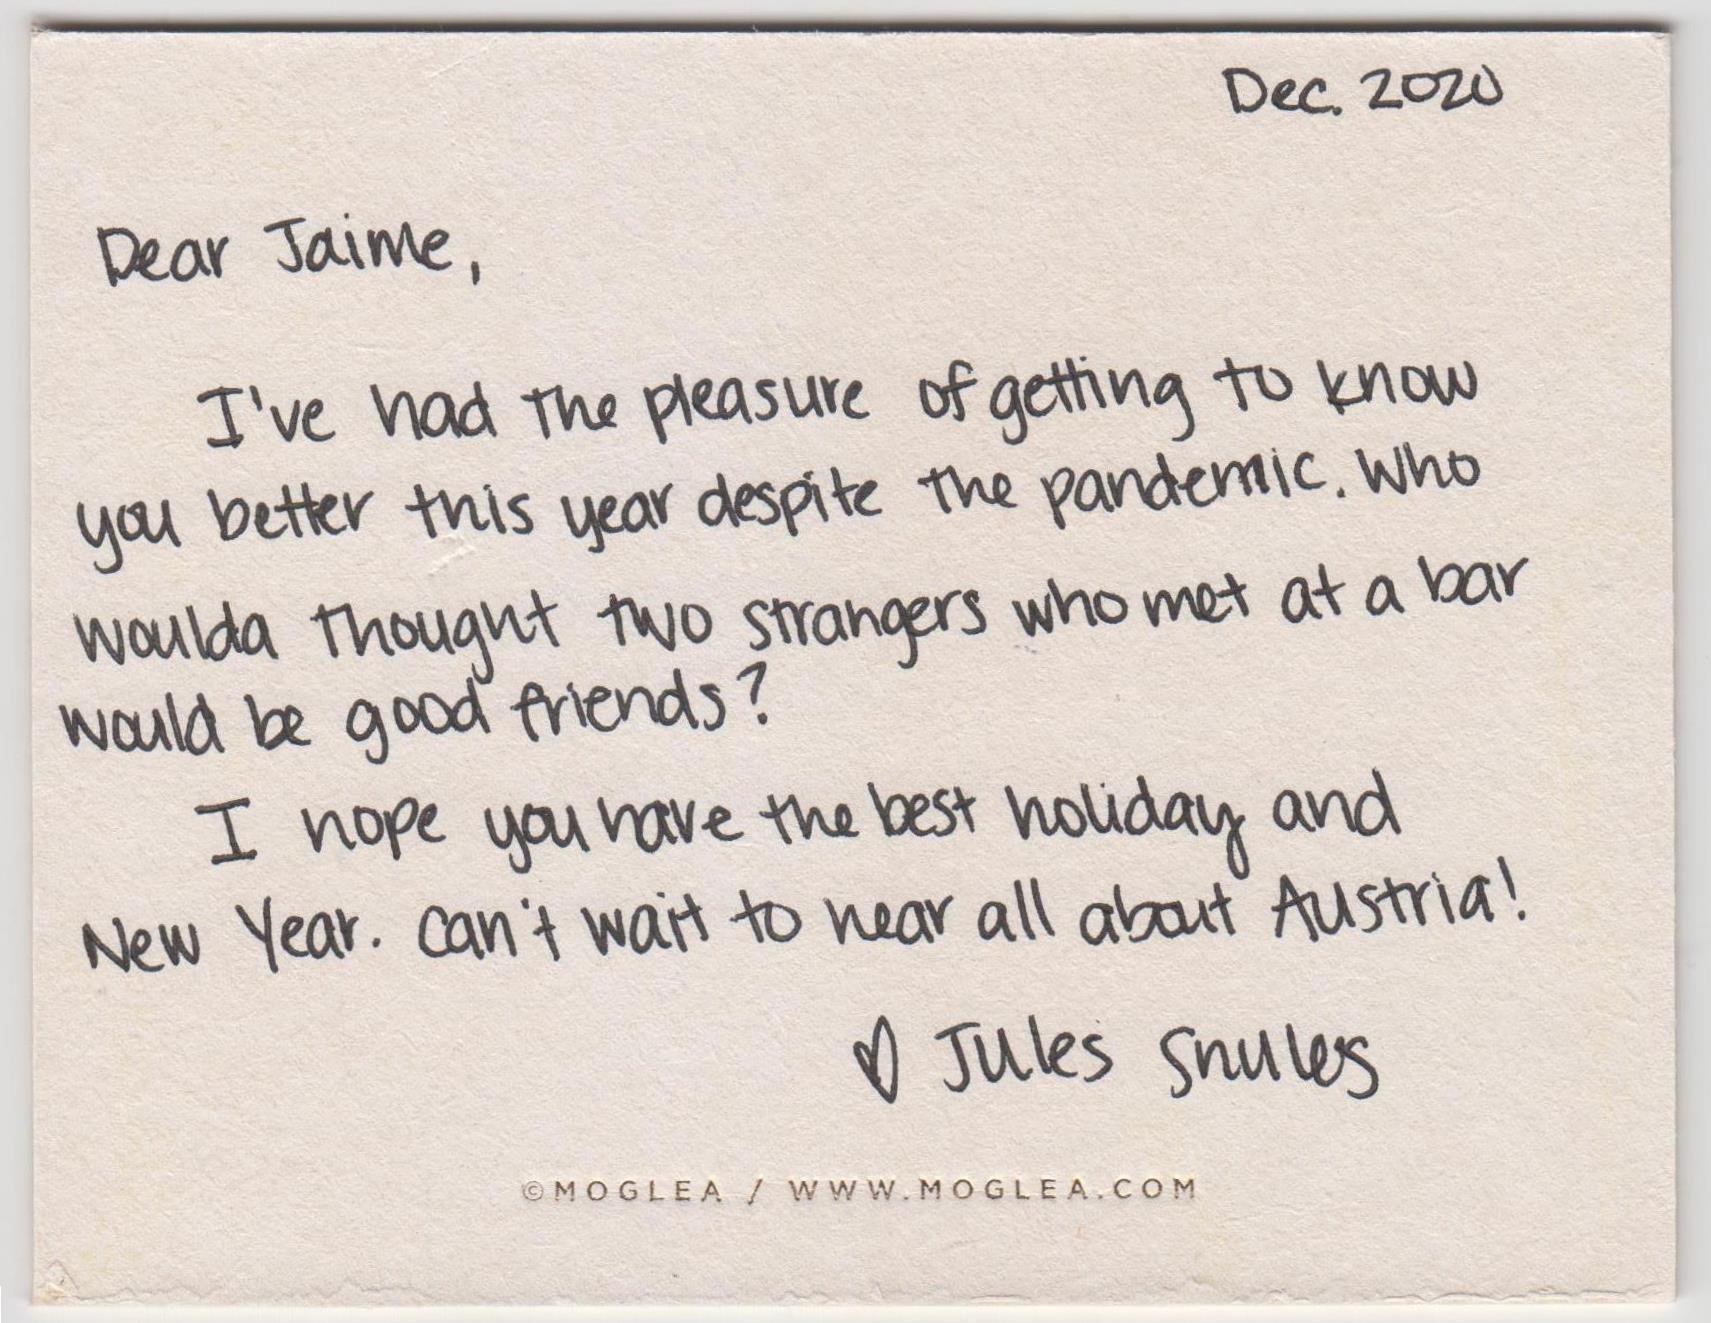 Dec. 2020
Dear Jaime,
I've had the pleasure of getting to know
you better this year despite the pandemic. Who
woulda thought two strangers who met at a bar
would be good friends?
I hope you have the best holiday and
New Year. Can't wait to hear all about Austria!
♡ Jules Shules
©MOGLEA / WWW.MOGLEA.COM